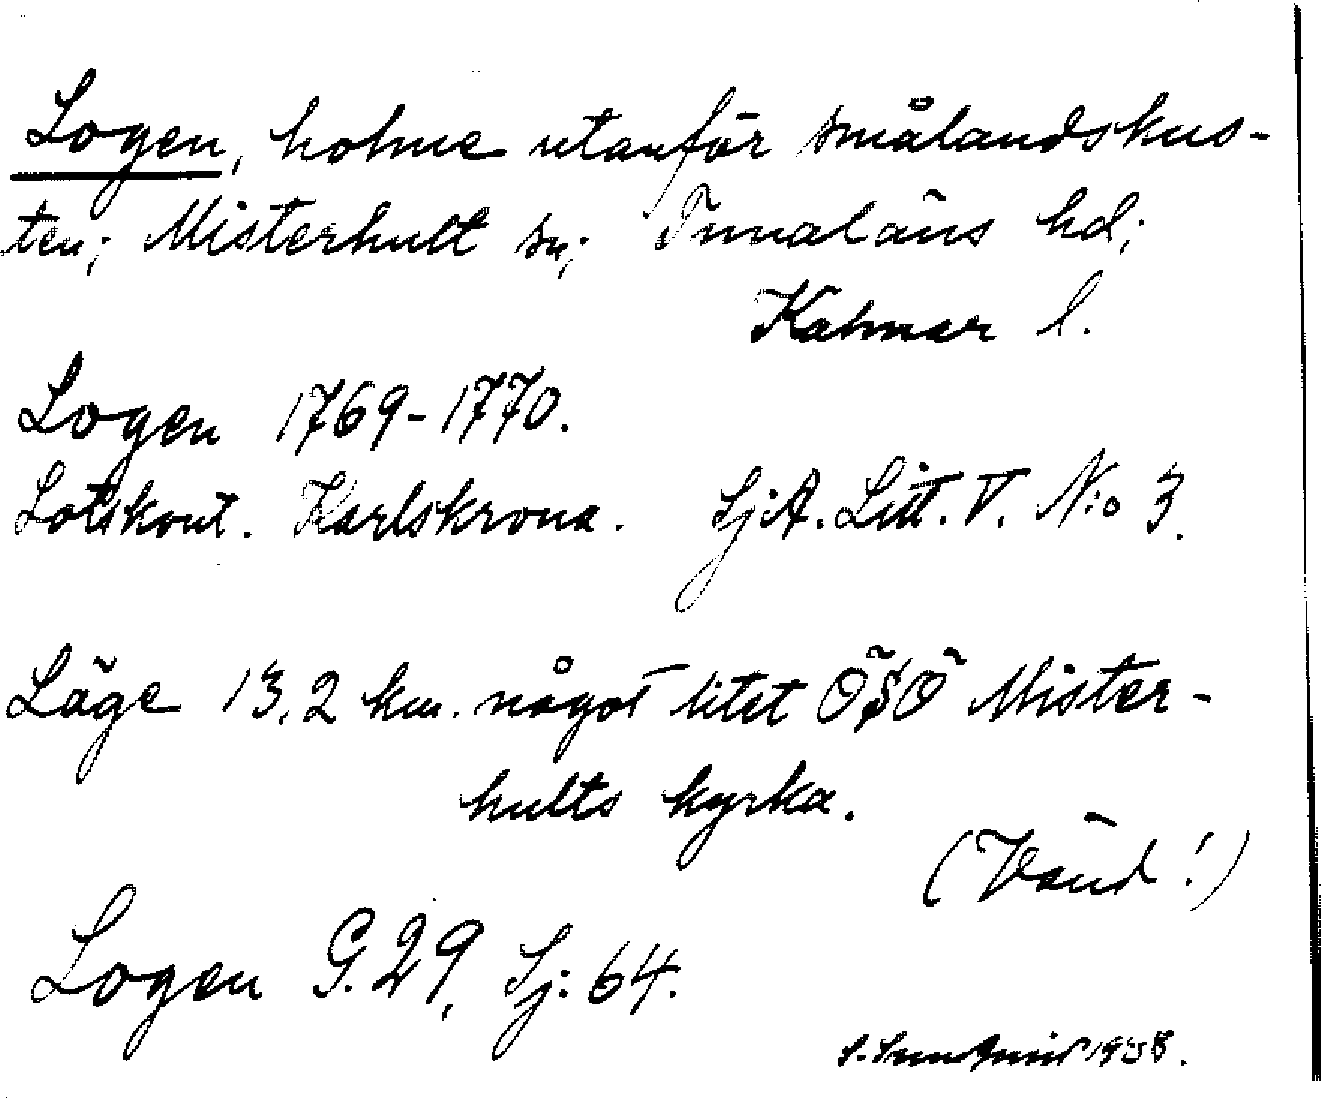 Logen, holme utanför smålandskus-
ten; Misterhult sn; Tunaläns hd;
Kalmar l.
Logen 1769-1770.
Lotskont. Karlskrona. Sj:A. Litt. V. N:o 3.
Läge 13,2 km. något litet ÖSÖ Mister-
hults kyrka.
(Vänd!)
Logen G. 29, Sj: 64.
1938.